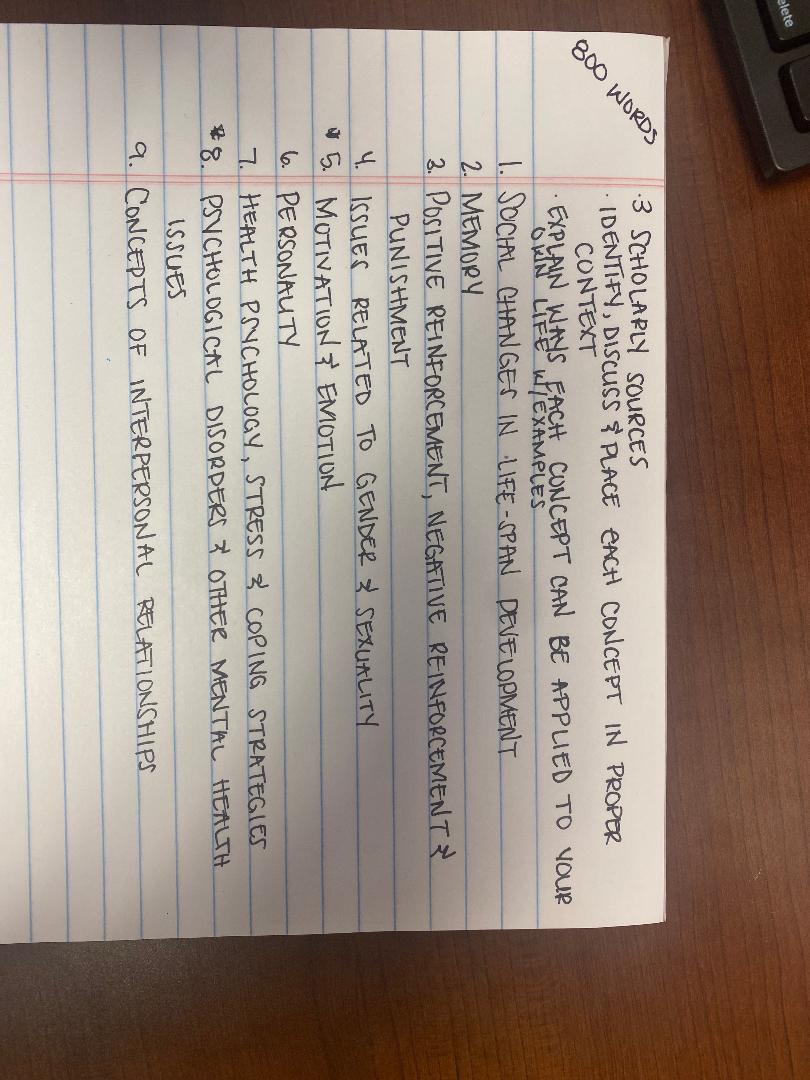 800 WORDS
· 3 SCHOLARLY SOURCES
· IDENTIFY, DISCUSS & PLACE EACH CONCEPT IN PROPER
CONTEXT
· EXPLAIN WAYS EACH CONCEPT CAN BE APPLIED TO YOUR
OWN LIFE W/EXAMPLES
1. SOCIAL CHANGES IN LIFE-SPAN DEVELOPMENT
2. MEMORY
3. POSITIVE REINFORCEMENT, NEGATIVE REINFORCEMENT &
PUNISHMENT
4. ISSUES RELATED TO GENDER & SEXUALITY
* 5. MOTIVATION & EMOTION
6. PERSONALITY
7. HEALTH PSYCHOLOGY, STRESS & COPING STRATEGIES
* 8. PSYCHOLOGICAL DISORDERS & OTHER MENTAL HEALTH
ISSUES
9. CONCEPTS OF INTERPERSONAL RELATIONSHIPS
elete